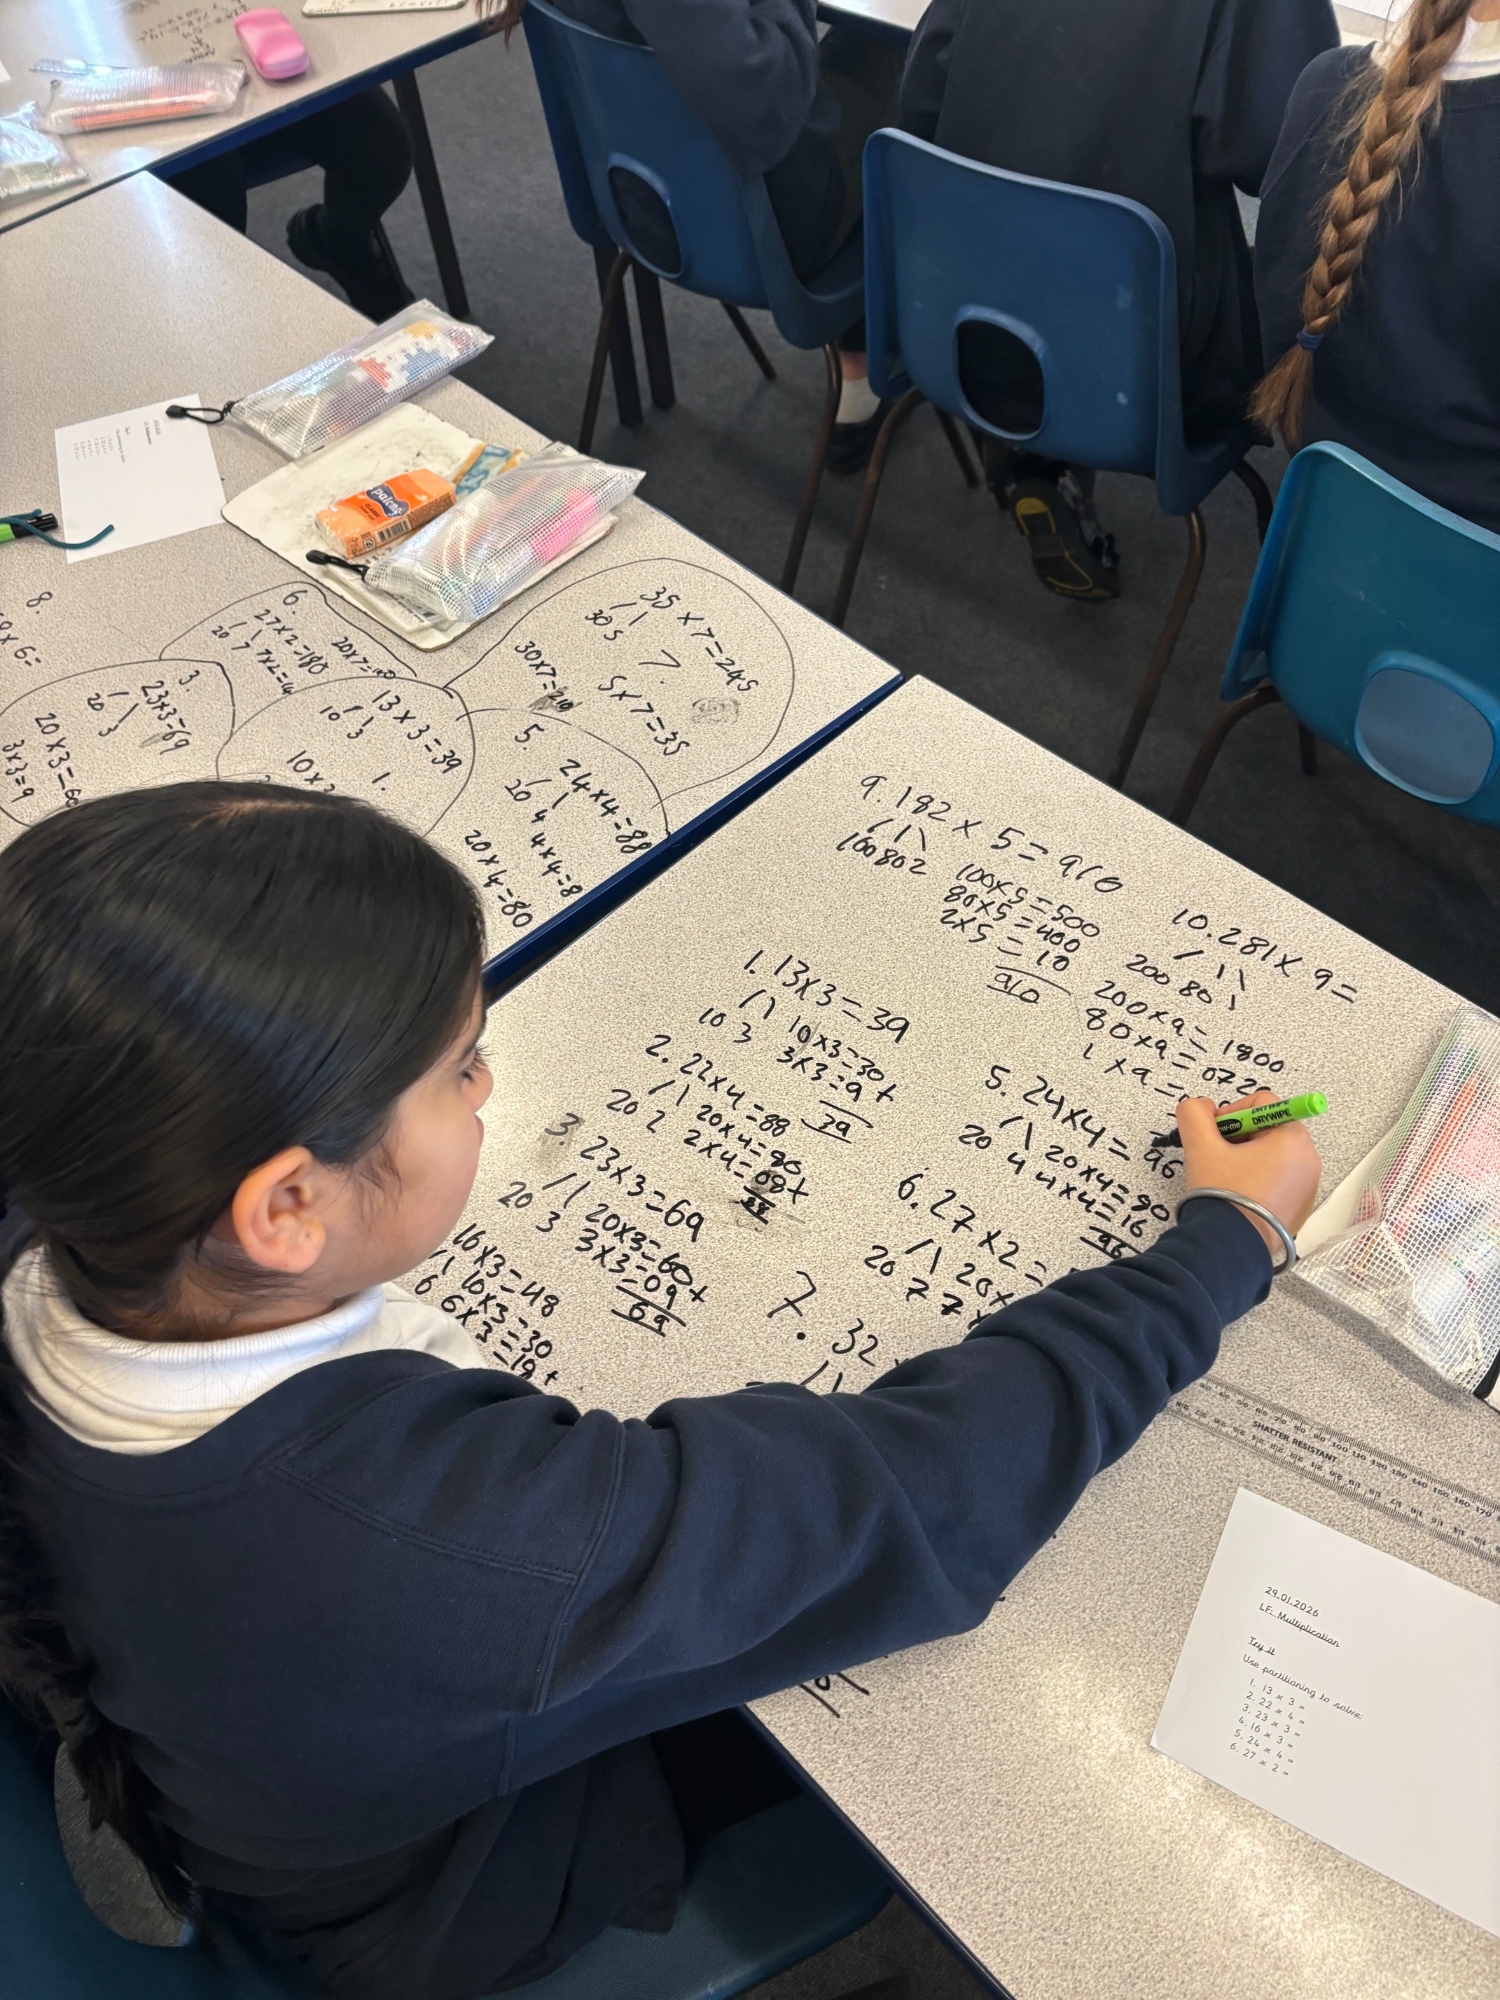 8.
× 6=
6.
27×2=180
20 7
7×2=14
20×7=140
3.
23×3=69
20 3
20×3=60
3×3=9
13×3=39
10 3
1.
10×3
35×7=245
30 5
7.
30×7=210
5×7=35
5.
24×4=88
20 4
4×4=8
20×4=80
palomo
9. 182×5=910
100 80 2
100×5=500
80×5=400
2×5=10
910
10. 281×9=
200 80 1
200×9=1800
80×9=0720
1×9=
1. 13×3=39
10 3
10×3=30
3×3=9+
39
2. 22×4=88
20 2
20×4=80
2×4=08+
88
3. 23×3=69
20 3
20×3=60
3×3=09+
69
16×3=48
6
10×3=30
6×3=18+
5. 24×4=96
20 4
20×4=80
4×4=16
96
6. 27×2=
20 7
20×
7×
7. 32
DRYWIPE
SHATTER RESISTANT
29.01.2026
LF: Multiplication
Try it
Use partitioning to solve:
1. 13 × 3 =
2. 22 × 4 =
3. 23 × 3 =
4. 16 × 3 =
5. 24 × 4 =
6. 27 × 2 =